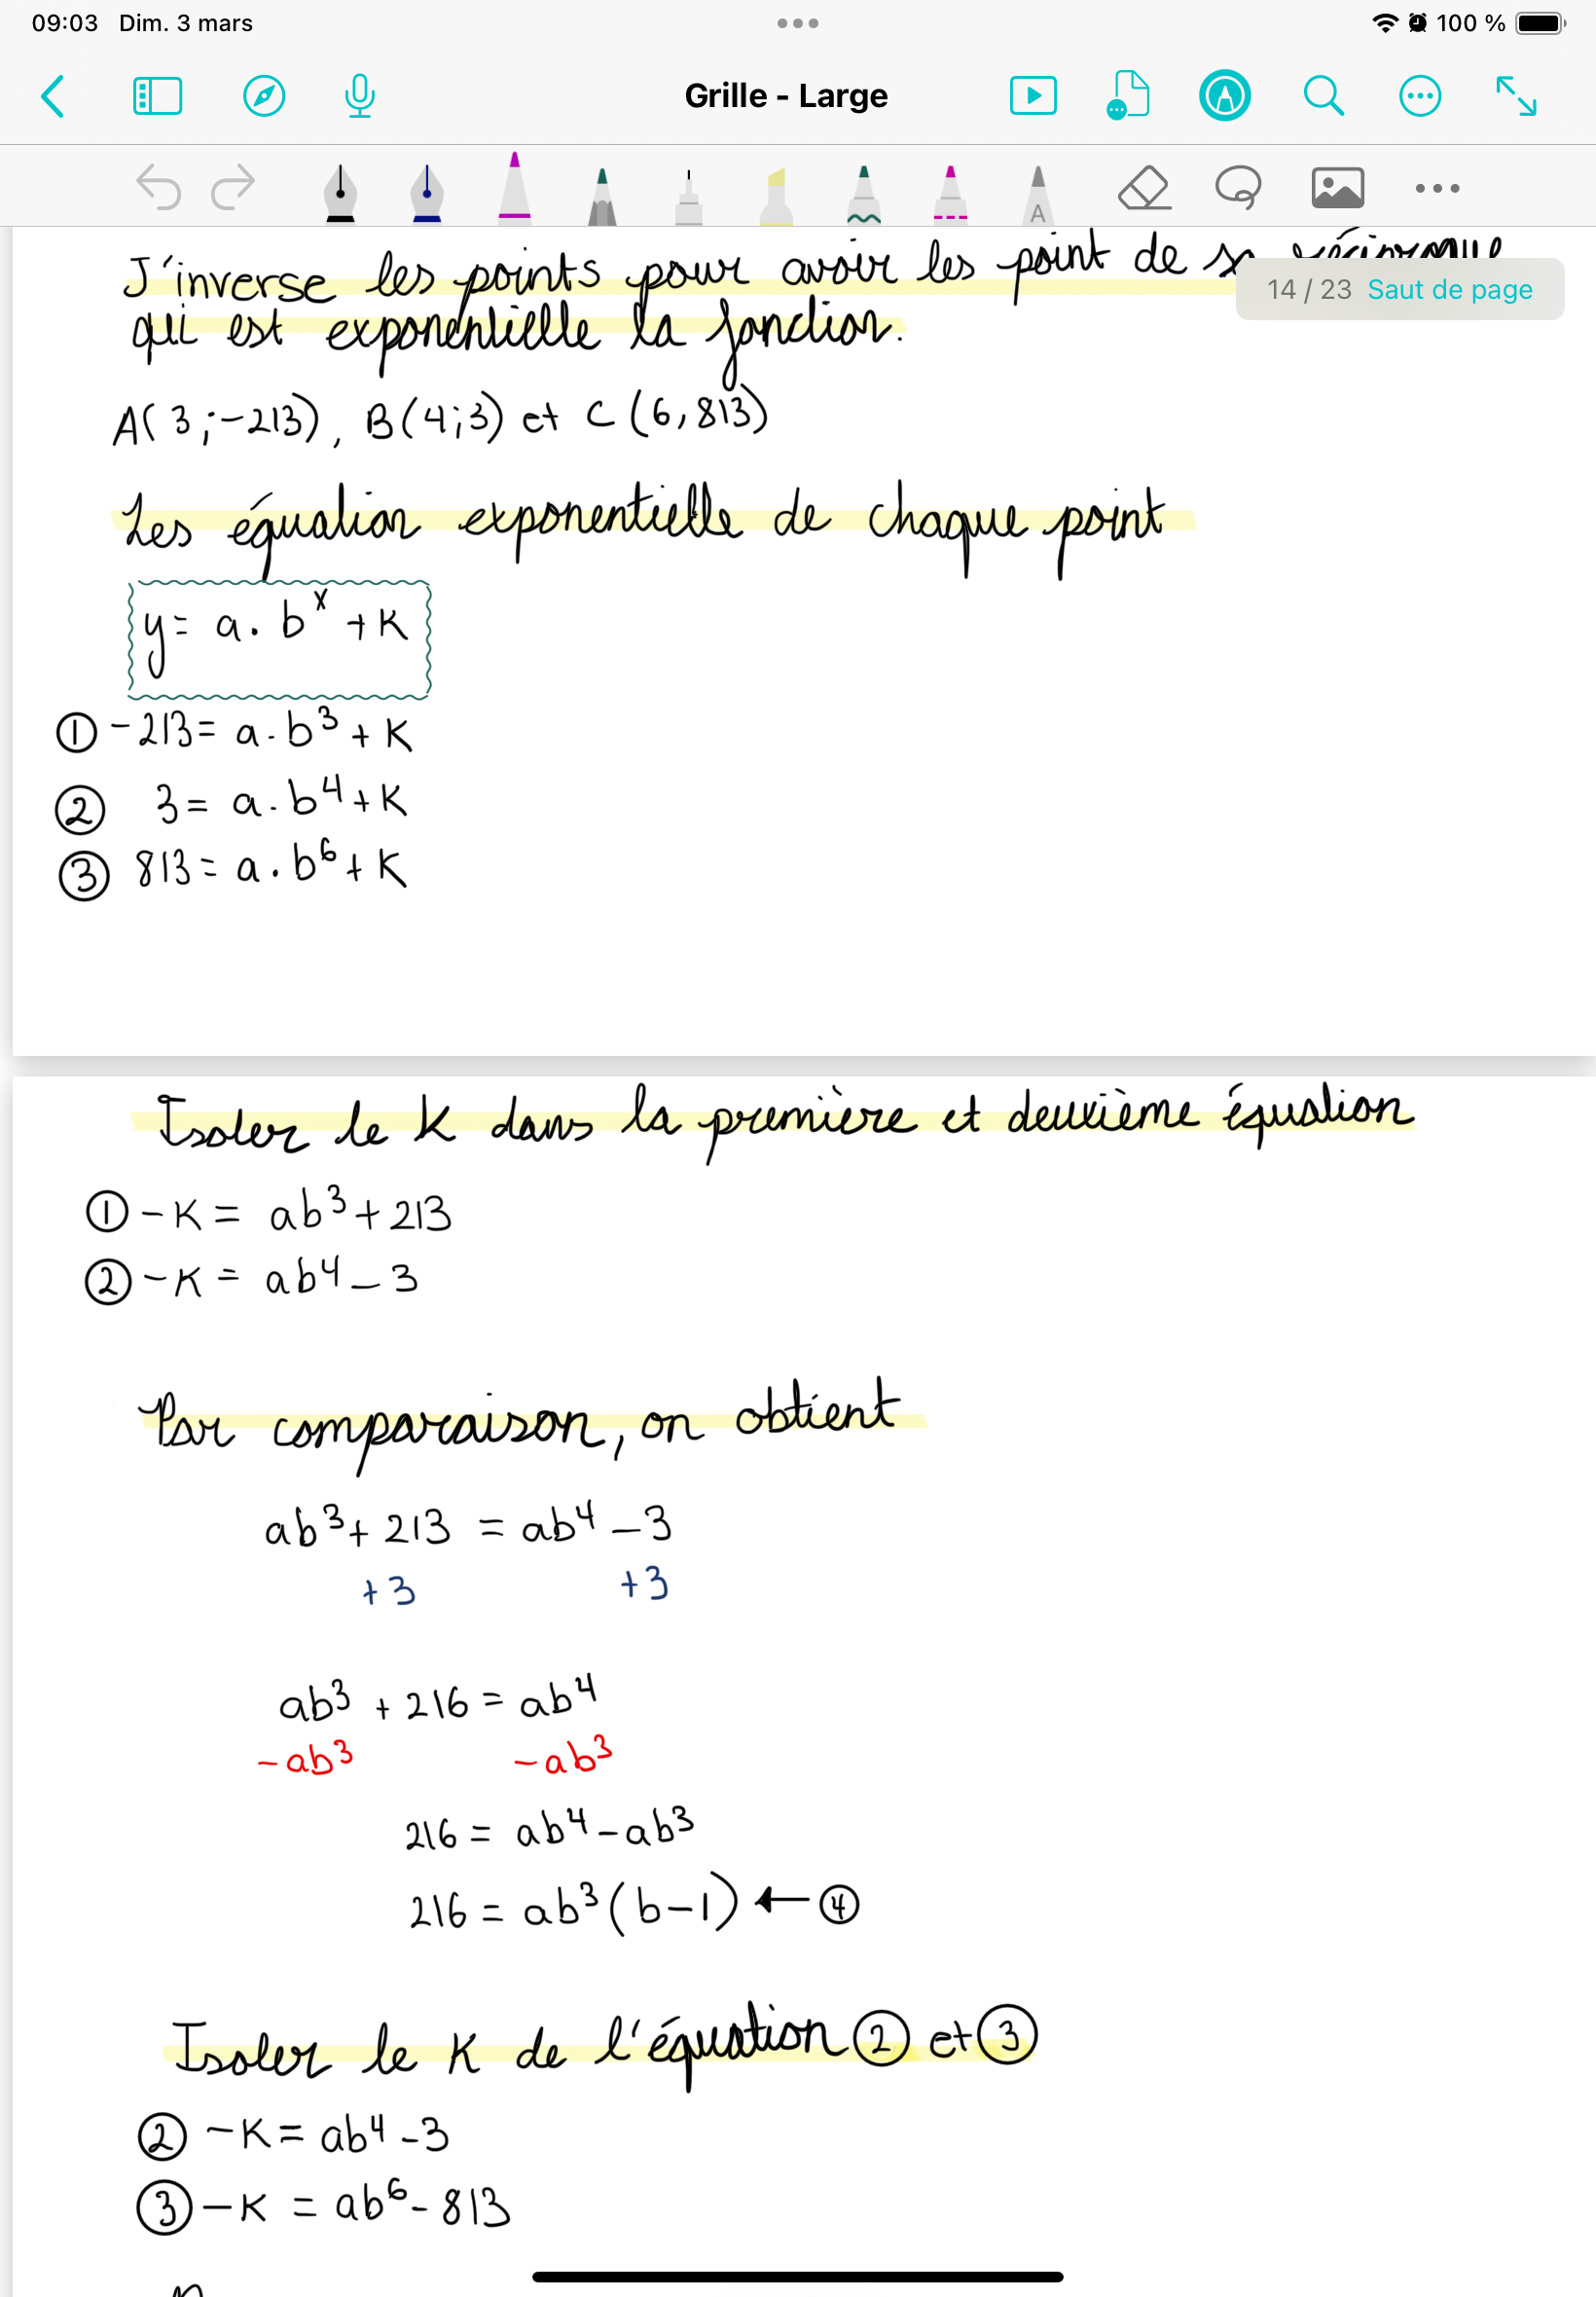 09:03 Dim. 3 mars 100 %
Grille - Large
A
J'inverse les points pour avoir les point de sa
14 / 23 Saut de page
qui est exponentielle la fonction.
A(3;-213), B(4;3) et C(6,813)
Les équation exponentielle de chaque point
y= a·b^x +K
① -213= a·b³+K
② 3= a·b⁴+K
③ 813= a·b⁶+K
Isoler le K dans la première et deuxième équation
① -K= ab³+213
② -K= ab⁴-3
Par comparaison, on obtient
ab³+213 = ab⁴-3
+3 +3
ab³+216=ab⁴
-ab³ -ab³
216= ab⁴-ab³
216= ab³(b-1) ← ④
Isoler le K de l'équation ② et ③
② -K= ab⁴-3
③ -K = ab⁶-813